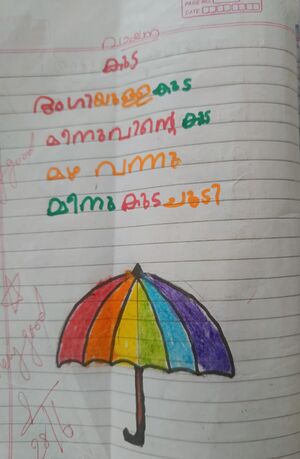 PAGE NO.
DATE
വായന
കുട
ഭംഗിയുള്ള കുട
മീനുവിന്റെ കുട
മഴ വന്നു
മീനു കുട ചൂടി
good
Very good
28/6